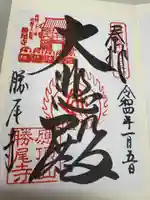 奉拝
令四年一月五日
大悲殿
應頂山
勝尾寺
勝尾寺